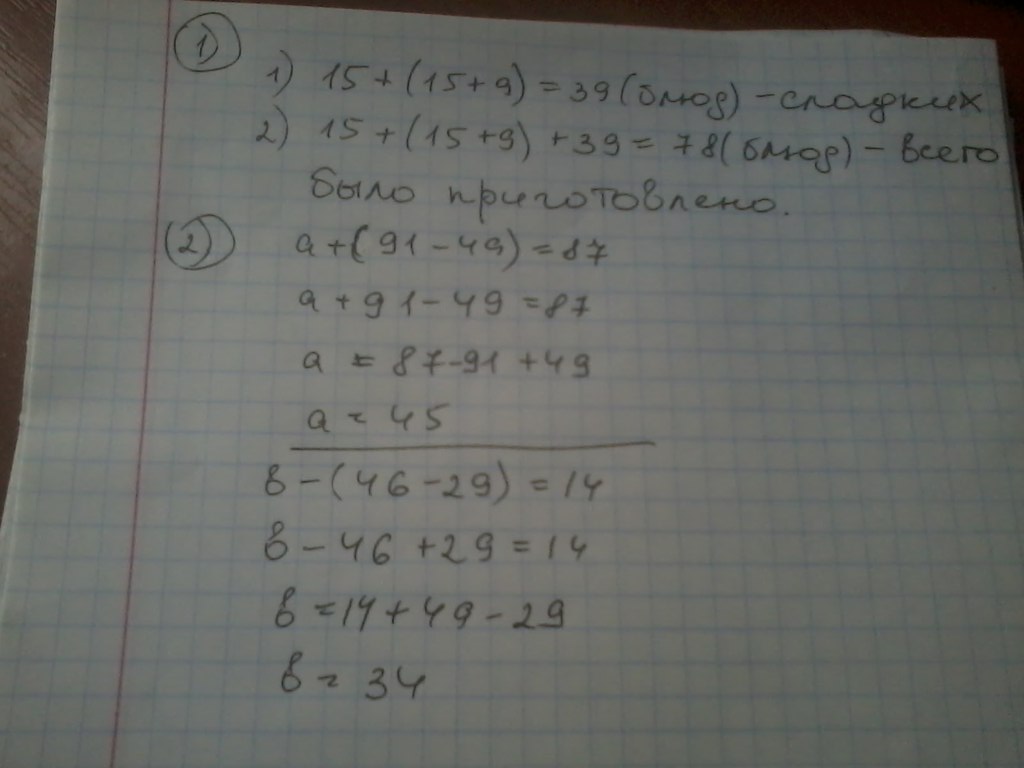 1)
1) 15 + (15 + 9) = 39 (блюд) – сладких
2) 15 + (15 + 9) + 39 = 78 (блюд) – всего
было приготовлено.
(2)
а + (91 – 49) = 87
а + 91 – 49 = 87
а = 87 – 91 + 49
а = 45
в – (46 – 29) = 14
в – 46 + 29 = 14
в = 14 + 49 – 29
в = 34